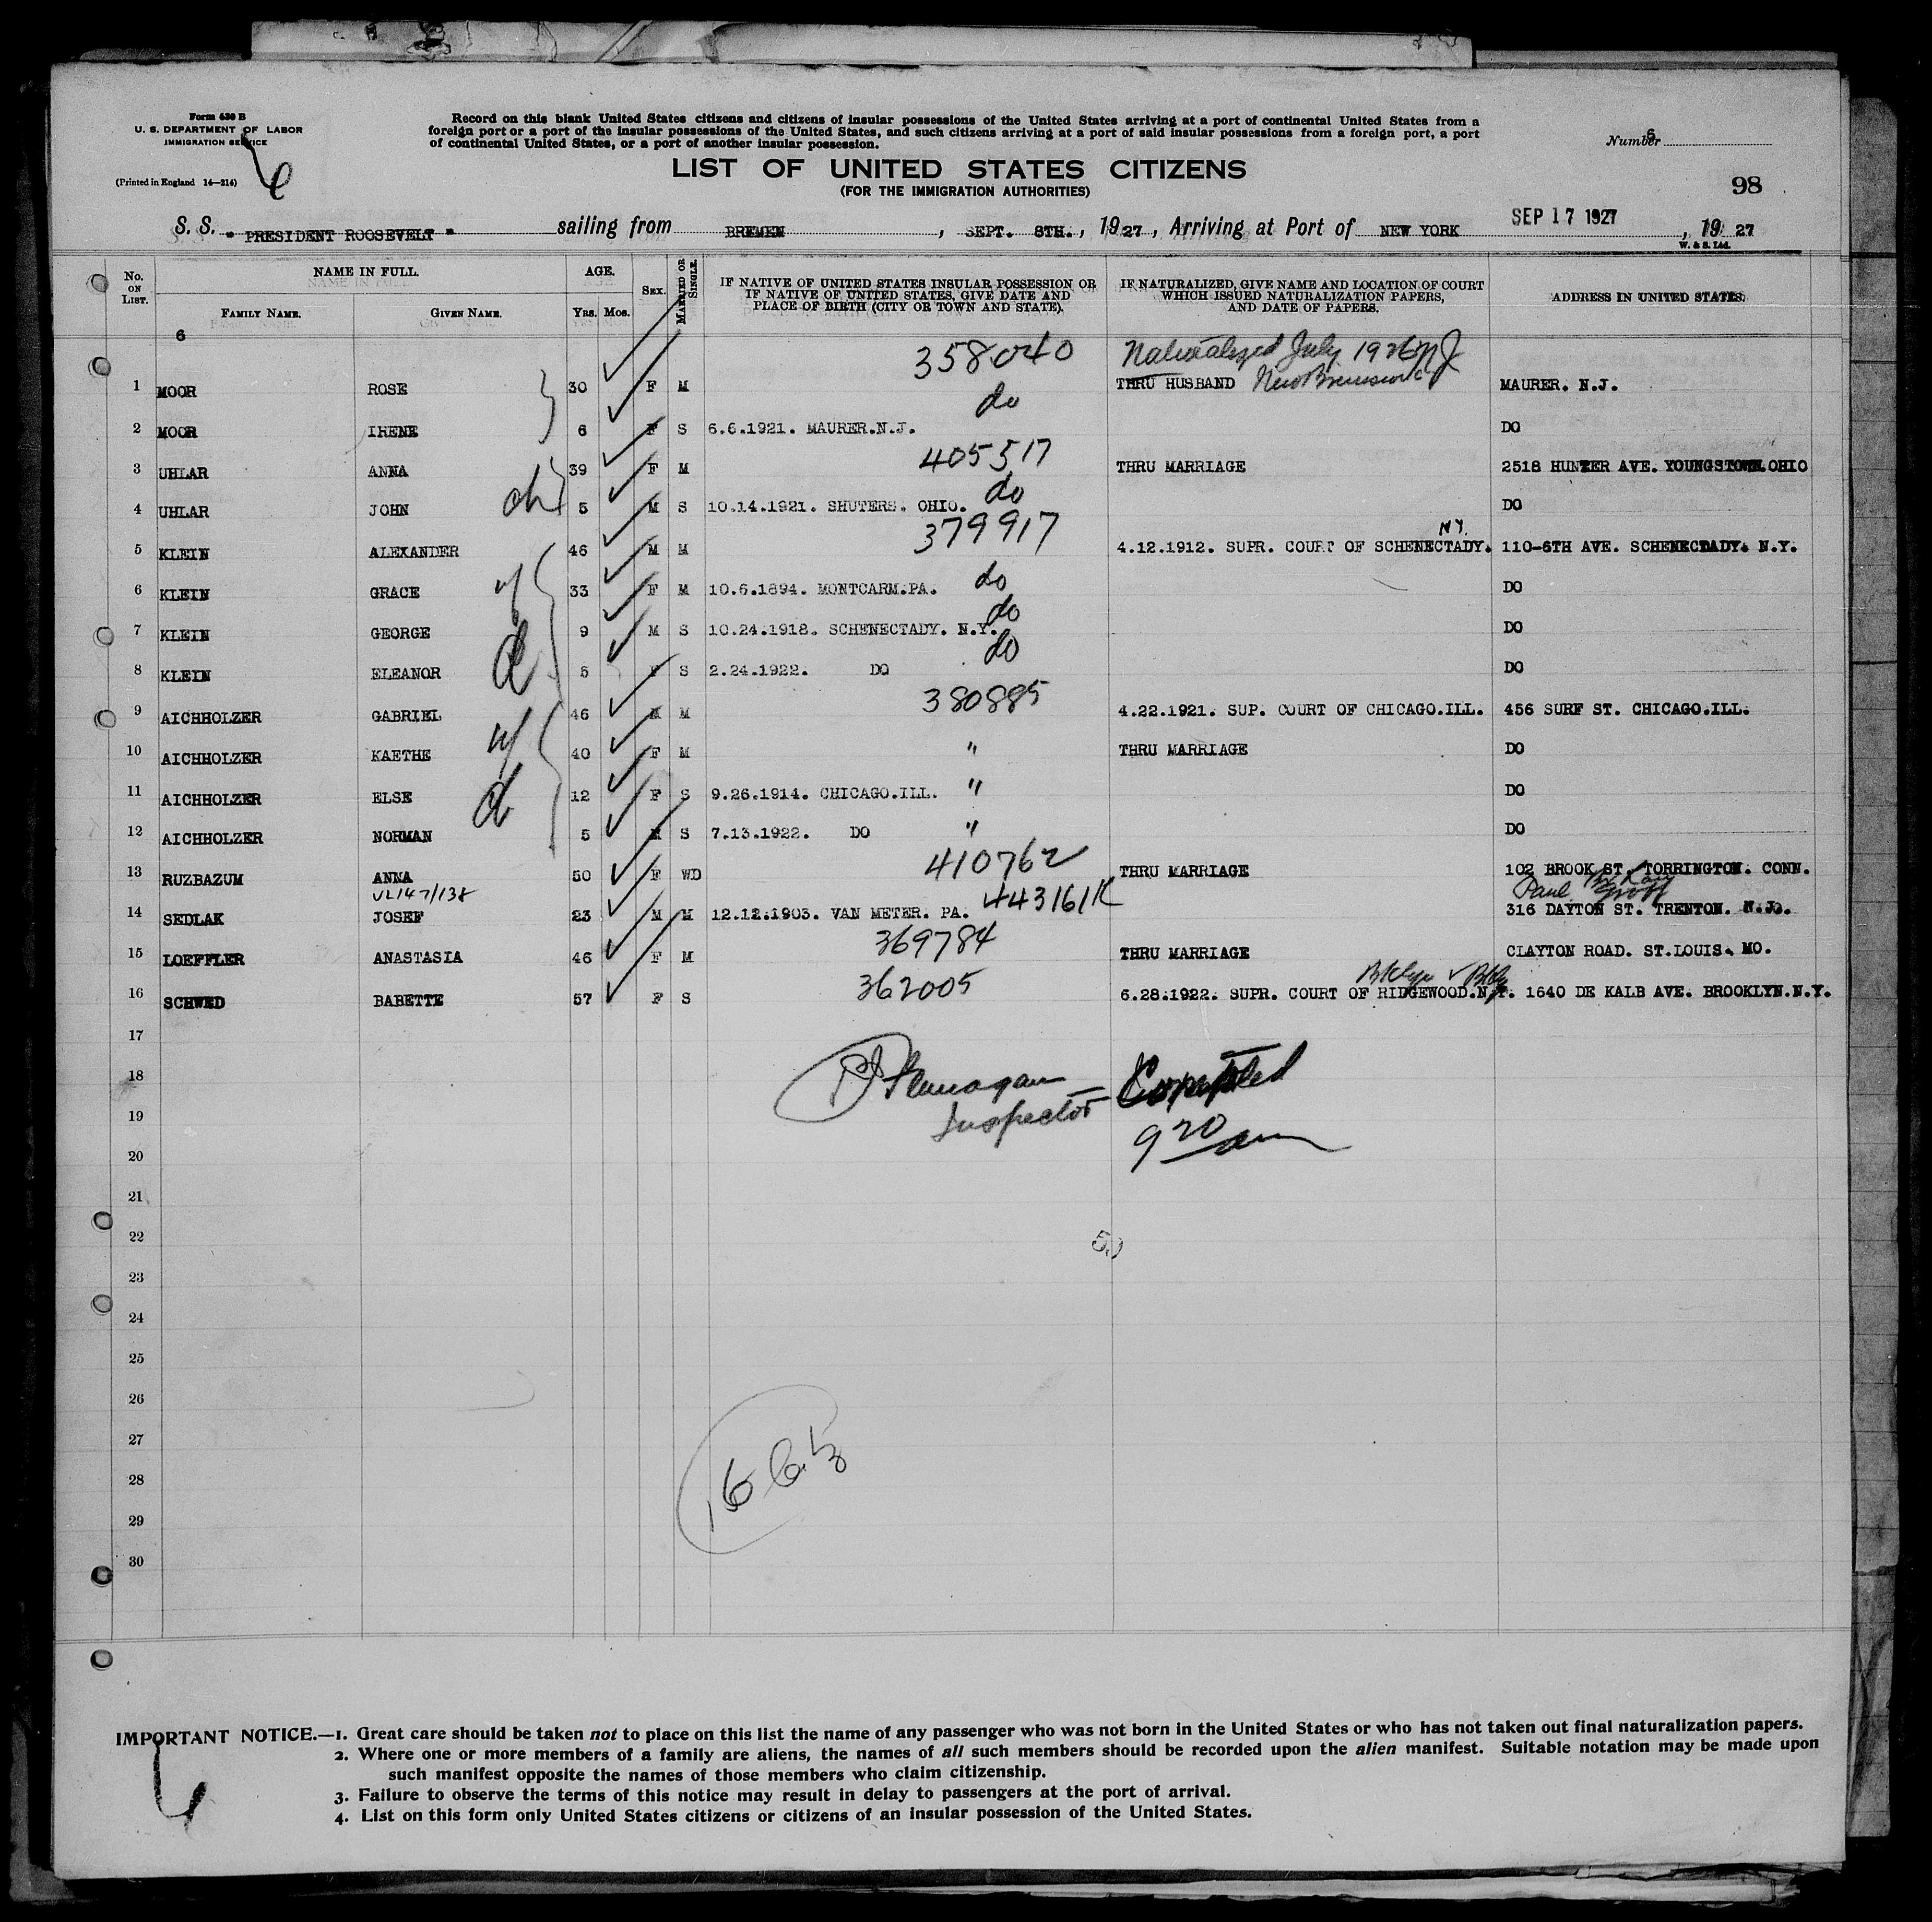 Form 630 B
U. S. DEPARTMENT OF LABOR
IMMIGRATION SERVICE
(Printed in England 14—214)
6
Record on this blank United States citizens and citizens of insular possessions of the United States arriving at a port of continental United States from a
foreign port or a port of the insular possessions of the United States, and such citizens arriving at a port of said insular possessions from a foreign port, a port
of continental United States, or a port of another insular possession.
Number 6
LIST OF UNITED STATES CITIZENS
(FOR THE IMMIGRATION AUTHORITIES)
98
S. S. " PRESIDENT ROOSEVELT " sailing from BREMEN, SEPT. 8TH., 1927, Arriving at Port of NEW YORK SEP 17 1927, 19 27
W. & S. Ltd.
No. ON LIST. NAME IN FULL. AGE. SEX. MARRIED OR SINGLE. IF NATIVE OF UNITED STATES INSULAR POSSESSION OR IF NATIVE OF UNITED STATES, GIVE DATE AND PLACE OF BIRTH (CITY OR TOWN AND STATE). IF NATURALIZED, GIVE NAME AND LOCATION OF COURT WHICH ISSUED NATURALIZATION PAPERS, AND DATE OF PAPERS. ADDRESS IN UNITED STATES.
FAMILY NAME. GIVEN NAME. Yrs. Mos.
6
358040 Naturalized July 1926 NJ
1 MOOR ROSE 30 F M THRU HUSBAND New Brunswick MAURER. N.J.
do
2 MOOR IRENE 6 F S 6.6.1921. MAURER.N.J. DO
405517
3 UHLAR ANNA 39 F M THRU MARRIAGE 2518 HUNTER AVE. YOUNGSTOWN.OHIO
ch do
4 UHLAR JOHN 5 M S 10.14.1921. SHUTERS. OHIO. DO
379917 N.Y.
5 KLEIN ALEXANDER 46 M M 4.12.1912. SUPR. COURT OF SCHENECTADY. 110-6TH AVE. SCHENECDADY. N.Y.
w do
6 KLEIN GRACE 33 F M 10.6.1894. MONTCARM.PA. DO
do
7 KLEIN GEORGE 9 M S 10.24.1918. SCHENECTADY. N.Y. DO
do
8 KLEIN ELEANOR 5 F S 2.24.1922. DO DO
380885
9 AICHHOLZER GABRIEL 46 M M 4.22.1921. SUP. COURT OF CHICAGO.ILL. 456 SURF ST. CHICAGO.ILL.
10 AICHHOLZER KAETHE w 40 F M " THRU MARRIAGE DO
11 AICHHOLZER ELSE 12 F S 9.26.1914. CHICAGO.ILL. " DO
12 AICHHOLZER NORMAN 5 M S 7.13.1922. DO " DO
410762
13 RUZBAZUM ANNA 50 F WD THRU MARRIAGE 102 BROOK ST. TORRINGTON. CONN.
VL147/138 443161K Paul
14 SEDLAK JOSEF 23 M M 12.12.1903. VAN METER. PA. 316 DAYTON ST. TRENTON. N.J.
369784
15 LOEFFLER ANASTASIA 46 F M THRU MARRIAGE CLAYTON ROAD. ST.LOUIS. MO.
362005 Bklyn
16 SCHWED BABETTE 57 F S 6.28.1922. SUPR. COURT OF RIDGEWOOD.N.Y. 1640 DE KALB AVE. BROOKLYN.N.Y.
17
18 Flanagan
19 Inspector
20 9 20 am
21
22
23
24
25
26
27
28
29
30
IMPORTANT NOTICE.—1. Great care should be taken not to place on this list the name of any passenger who was not born in the United States or who has not taken out final naturalization papers.
2. Where one or more members of a family are aliens, the names of all such members should be recorded upon the alien manifest. Suitable notation may be made upon
such manifest opposite the names of those members who claim citizenship.
3. Failure to observe the terms of this notice may result in delay to passengers at the port of arrival.
4. List on this form only United States citizens or citizens of an insular possession of the United States.
6